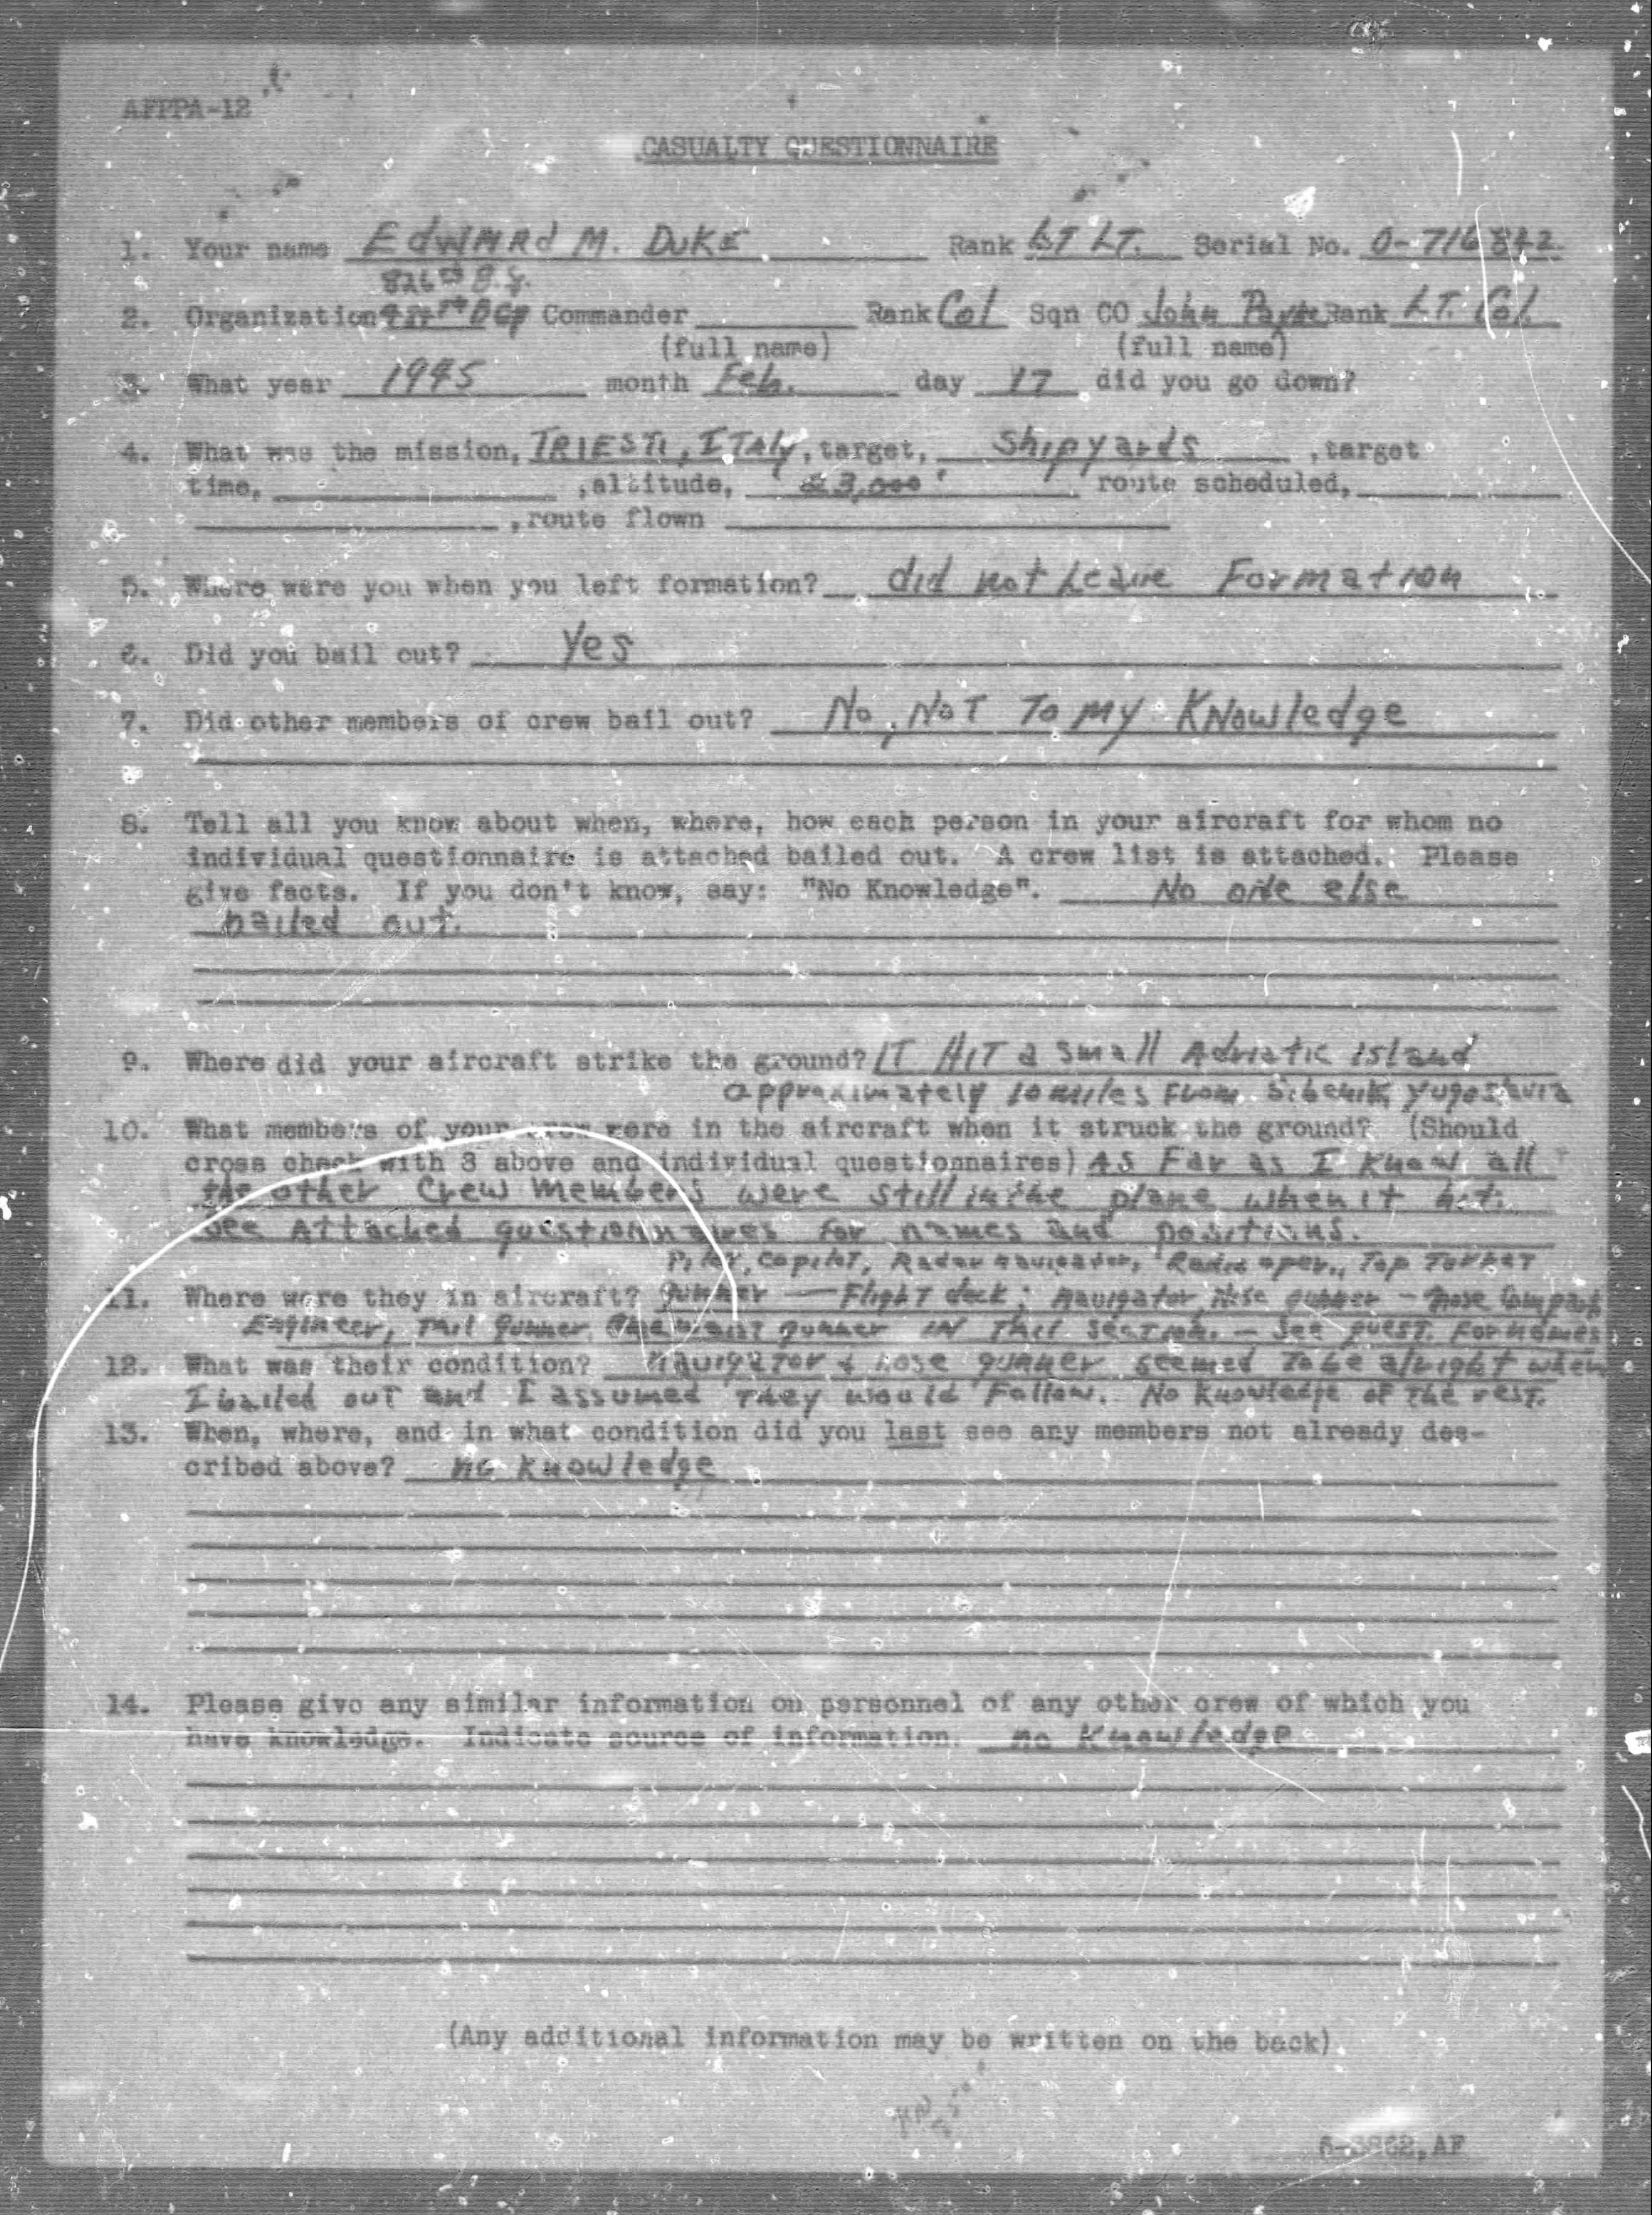 AFPPA-12
CASUALTY QUESTIONNAIRE
1. Your name EdWARd M. DUKE Rank 1ST LT. Serial No. O-716842.
826th B.S.
2. Organization BGp Commander Rank Col Sqn CO John Payne Rank LT. Col.
(full name) (full name)
3. What year 1945 month Feb. day 17 did you go down?
4. What was the mission, TRIESTI, ITAly, target, Shipyards , target
time, ,altitude, 23,000' route scheduled,
,route flown
5. Where were you when you left formation? did not Leave Formation
6. Did you bail out? Yes
7. Did other members of crew bail out? No, NOT TO MY KNowledge
8. Tell all you know about when, where, how each person in your aircraft for whom no
individual questionnaire is attached bailed out. A crew list is attached. Please
give facts. If you don't know, say: "No Knowledge". No one else
bailed out.
9. Where did your aircraft strike the ground? IT HIT a small Adriatic island
approximately 10 miles From Sibenik, Yugoslavia
10. What members of your crew were in the aircraft when it struck the ground? (Should
cross check with 8 above and individual questionnaires) AS Far as I know all
the other Crew members were still in the plane when it hit.
See Attached questionnaires for names and positions.
Pilot, Copilot, Radar navigator, Radio oper., Top Turret
11. Where were they in aircraft? gunner — Flight deck; navigator, Nose gunner - nose Compart
Engineer, Tail gunner, One waist gunner IN Tail section. - See quest. For names
12. What was their condition? navigator & nose gunner seemed to be alright when
I bailed out and I assumed they would Follow. No knowledge of the rest.
13. When, where, and in what condition did you last see any members not already des-
cribed above? no knowledge
14. Please give any similar information on personnel of any other crew of which you
have knowledge. Indicate source of information. no Knowledge
(Any additional information may be written on the back)
6-3862,AF